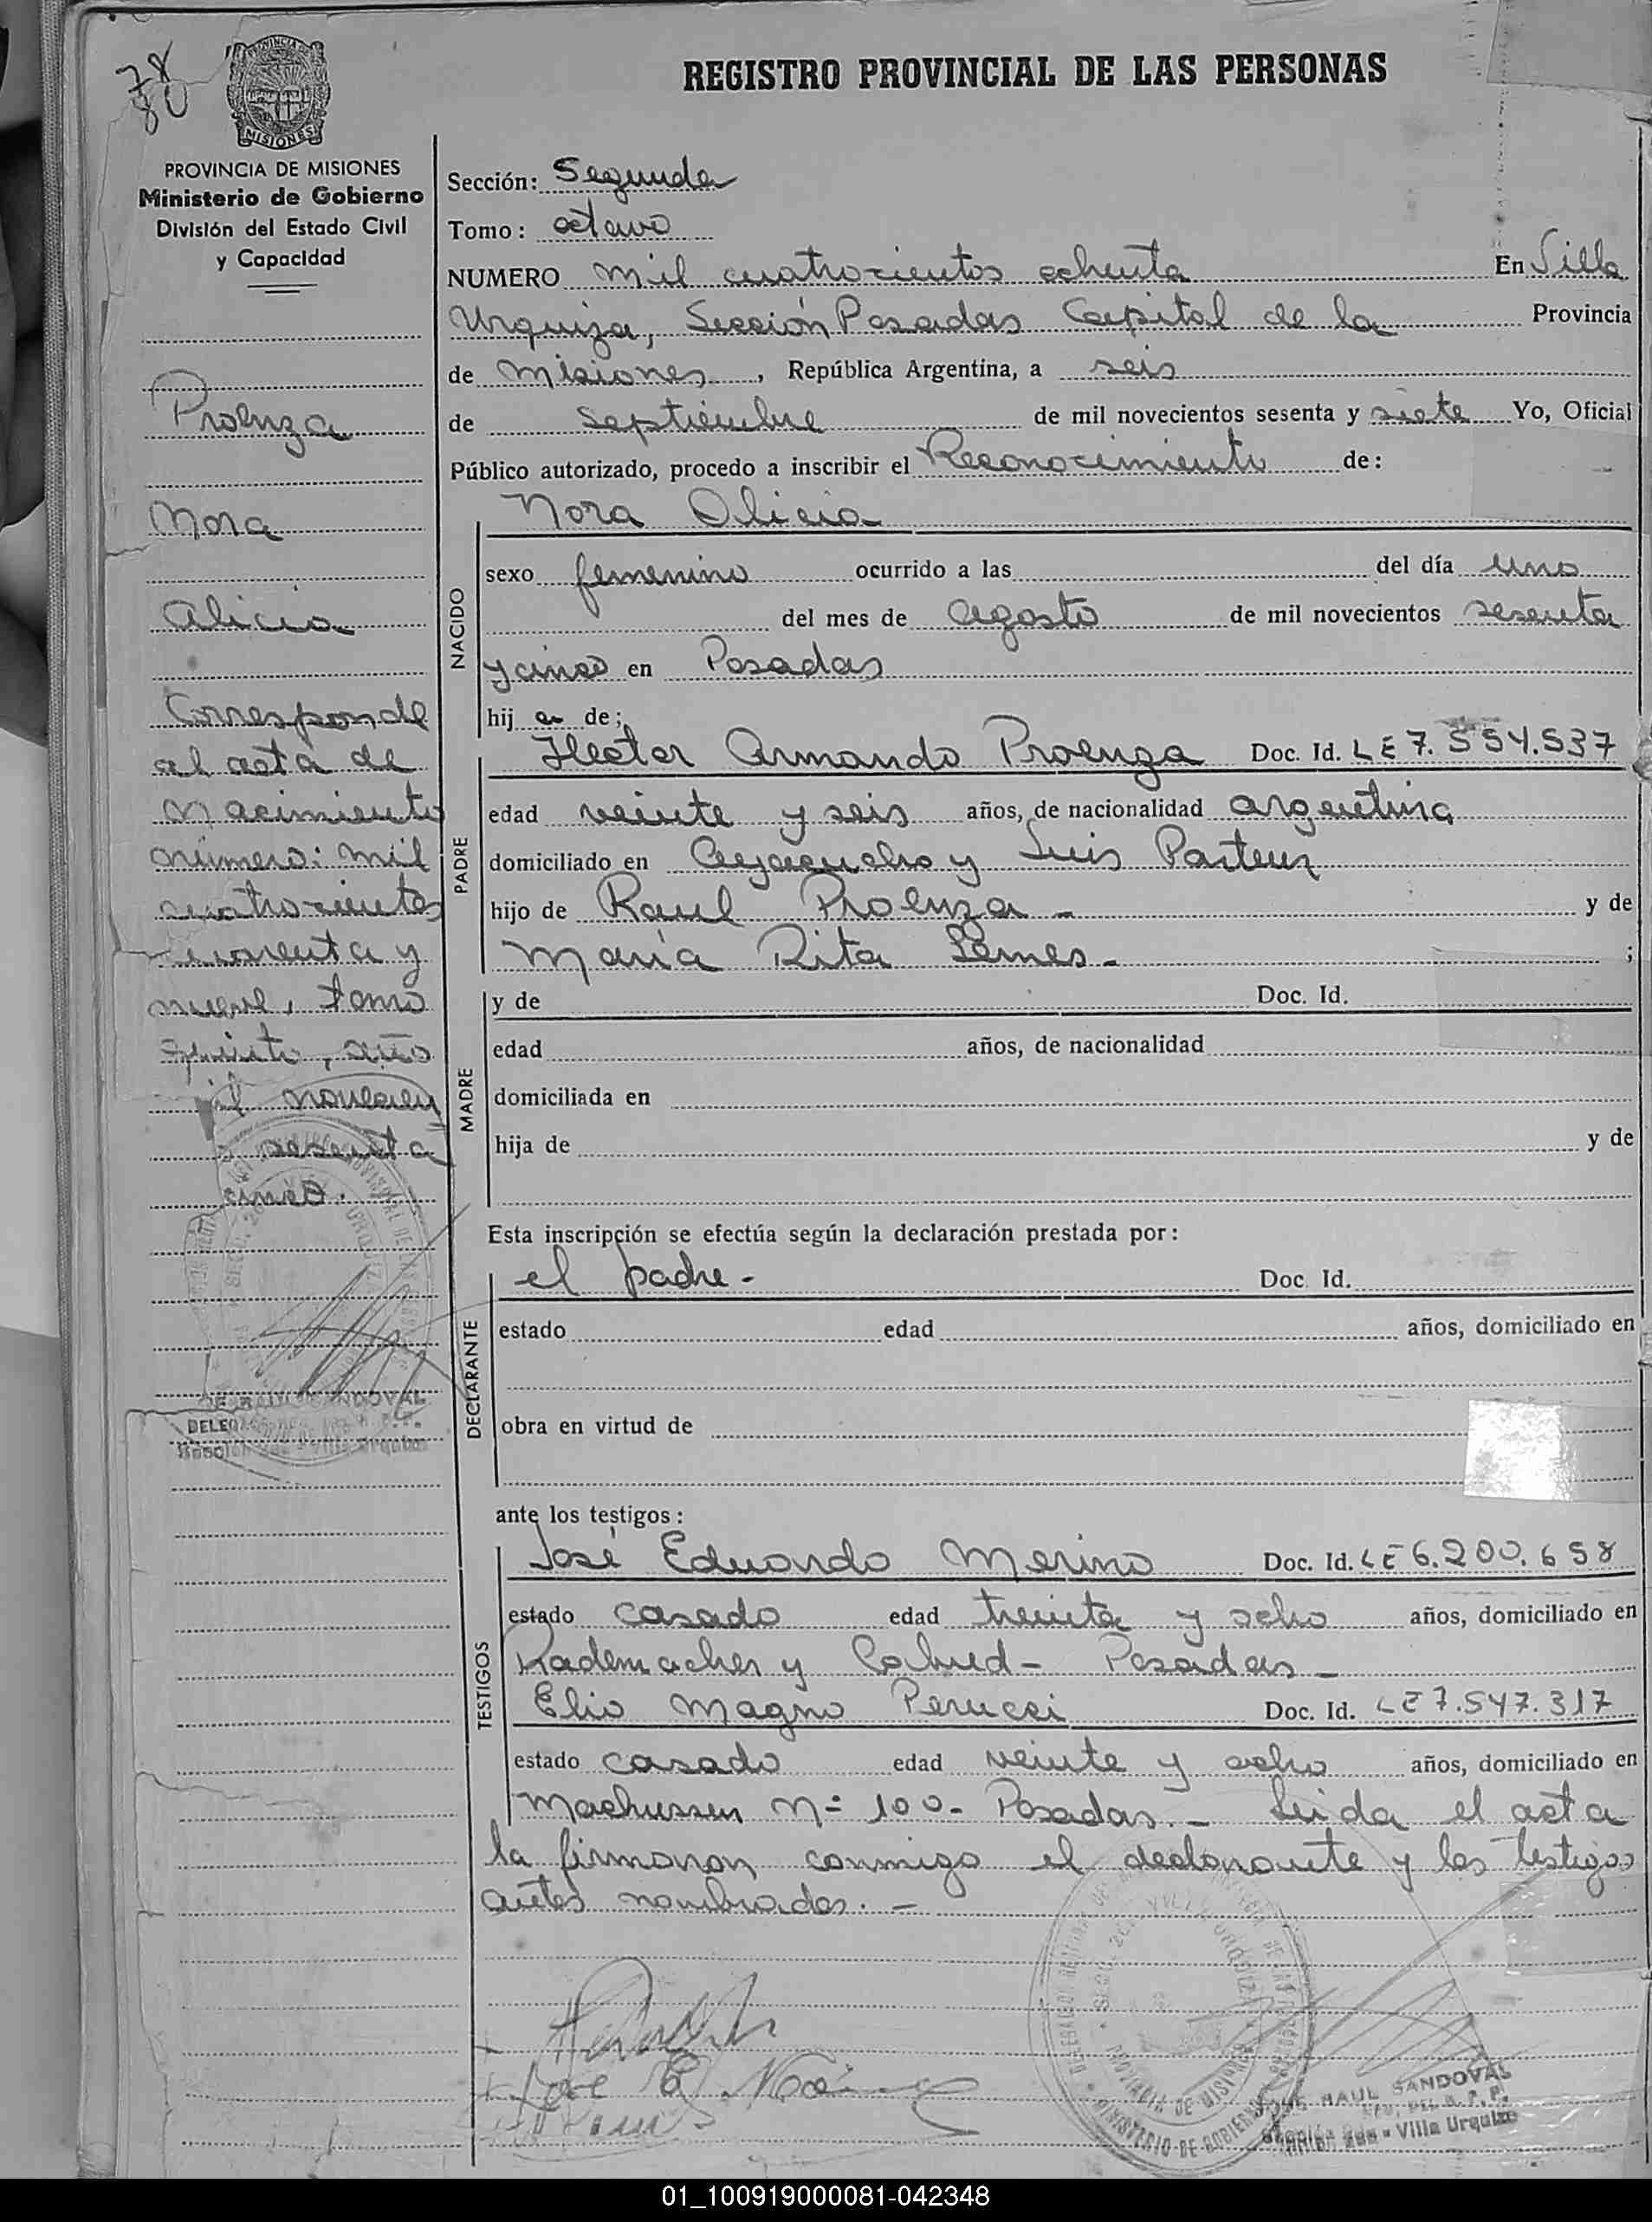 78
80
PROVINCIA DE
MISIONES
PROVINCIA DE MISIONES
Ministerio de Gobierno
División del Estado Civil
y Capacidad
Proenza
Nora
Alicia
Corresponde
al acta de
nacimiento
número: mil
cuatrocientos
cuarenta y
nueve, tomo
quinto, año
novecien
sesenta
cinco.
REGISTRO PROVINCIAL DE LAS PERSONAS
Sección: Segunda
Tomo: octavo
NUMERO mil cuatrocientos ochenta En Villa
Urquiza, Sección Posadas Capital de la Provincia
de Misiones, República Argentina, a seis
de septiembre de mil novecientos sesenta y siete Yo, Oficial
Público autorizado, procedo a inscribir el Reconocimiento de:
Nora Alicia
NACIDO
sexo femenino ocurrido a las del día uno
del mes de agosto de mil novecientos sesenta
y cinco en Posadas
hija de;
PADRE
Hector Armando Proenza Doc. Id. LE 7.554.537
edad veinte y seis años, de nacionalidad argentina
domiciliado en Ayacucho y Luis Pasteur
hijo de Raul Proenza - y de
María Rita Lemes - ;
MADRE
y de Doc. Id.
edad años, de nacionalidad
domiciliada en
hija de y de
Esta inscripción se efectúa según la declaración prestada por:
DECLARANTE
el padre - Doc. Id.
estado edad años, domiciliado en
obra en virtud de
ante los testigos:
TESTIGOS
José Eduardo Merino Doc. Id. LE 6.200.658
estado casado edad treinta y ocho años, domiciliado en
Rademacher y Cabred - Posadas -
Elio Magno Perucci Doc. Id. LE 7.547.317
estado casado edad veinte y ocho años, domiciliado en
N= 100 - Posadas. - Leida el acta
la firmaron conmigo el declarante y los testigos
antes nombrados. -
Jose E
RAUL SANDOVAL
Villa Urquiza
01_100919000081-042348